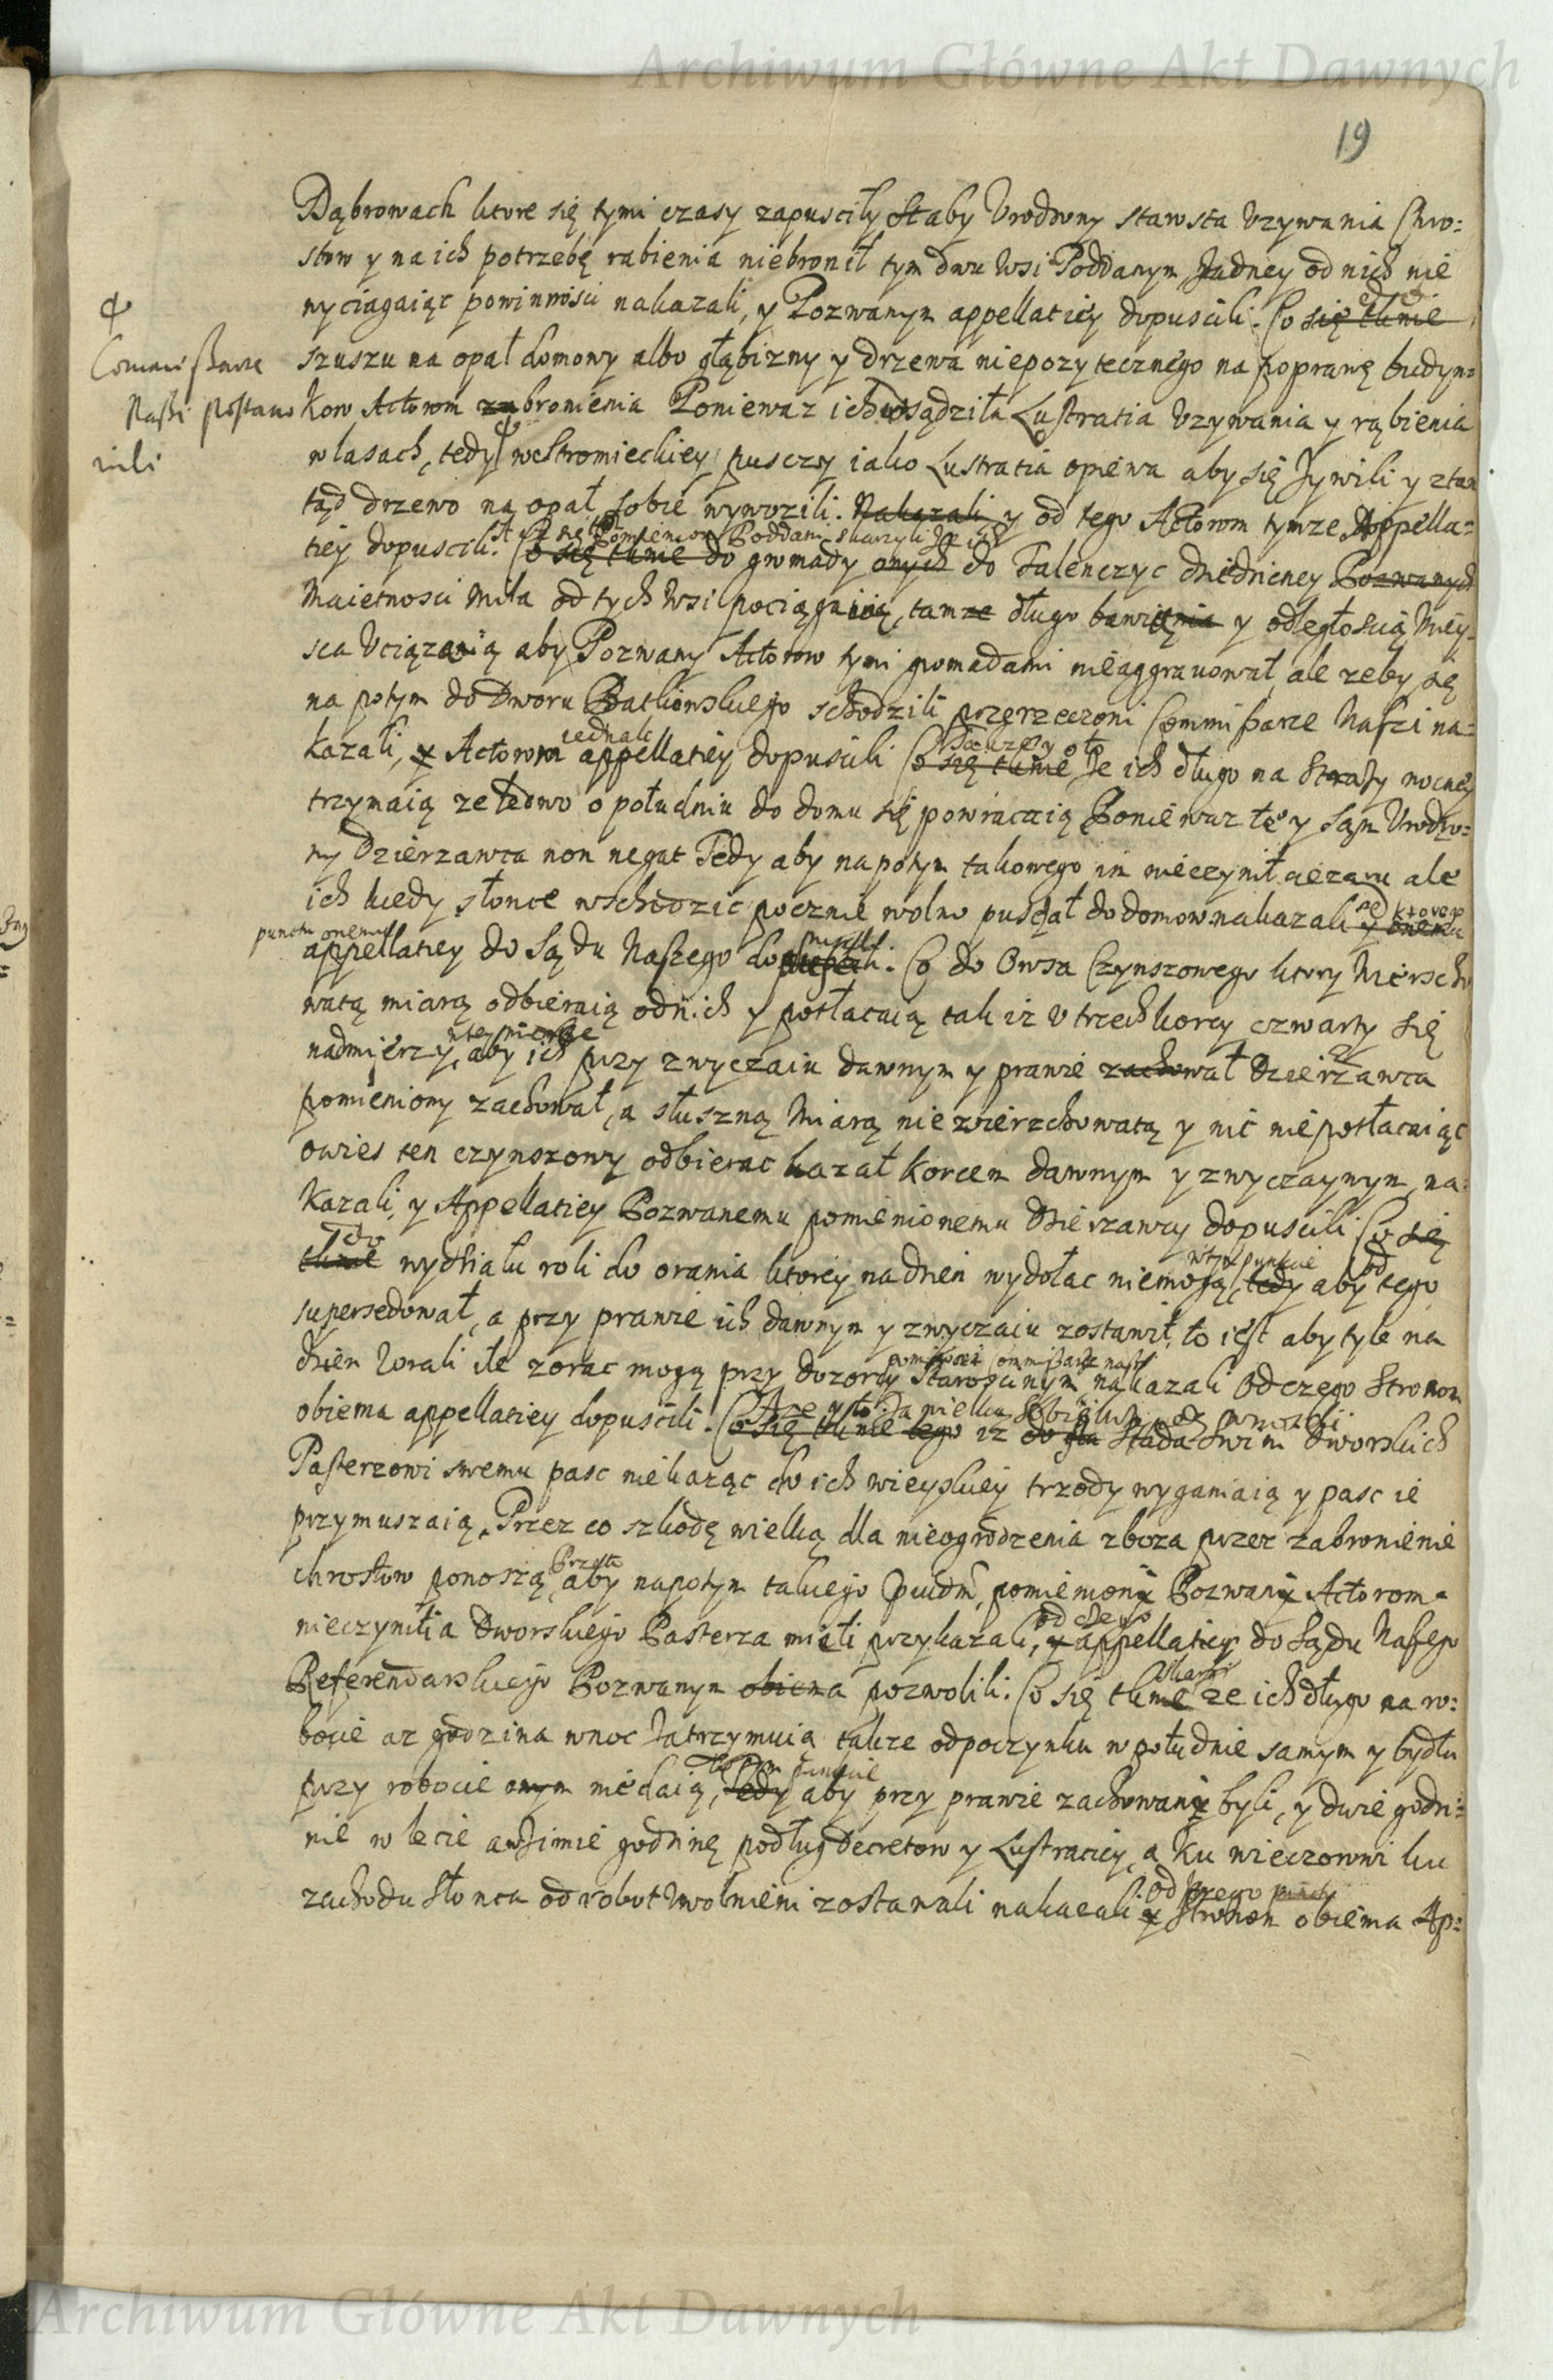 Archiwum Główne Akt Dawnych
19
Dąbrowach ktore się tymi czasy zapuscily Staby Vrodzony stawsta Vzywania Chro=
stow y na ich potrzebę rabienia niebronił tym dwu Wsi Poddanym Zadney od nich nie
wyciagaiąc powinnosci nakazali, y Pozwanym appellatiey dopuscili. Co się tknie
szuszu na opał domowy albo głąbizny y drzewa niepozytecznego na poprawę budyn=
Commissarze
Nassi Postano
wili
kow Actorom zabronienia Poniewaz ich osądziła Lustratia Vzywania y rąbienia
w lasach, tedy w Stromieckiey pusczy iako Lustratia opiewa aby się Zywili y ztam
tąd drzewo na opał sobie wywozili. Nakazali y od tego Actorom tymze Appella=
pomienieni Poddani skarzyli ze ich
tiey dopuscili. Co się tknie do gromady onych do Falenczyc dziedziczney Pozwanych
Maietnosci Mila od tych Wsi pociągaią, tamze długo bawią y odległoscią Miey=
sca Vciązaią aby Pozwany Actorow tymi gromadami nieaggravował, ale zeby się
na potym do Dworu schodzili przerzeczoni Commissarze Naszi na=
iednak
kazali, y Actorom appellatiey dopuscili Co się tknie Ze ich długo na Strazy nocney
trzymaią ze ledwo o południu do domu się powracaią Poniewaz te y sam Vrodzo=
ny Dzierzawca non negat Tedy aby napotym takowego im nieczynił ciezaru ale
ich kiedy słonce wschodzic pocznie wolno pusczał do domow nakazali y onemu
punctu onemu
appellatiey do Sądu Naszego dopuscili. Co do Owsa Czynszowego ktory Wierzcho
watą miarą odbieraią od nich y potłacaią tak iz v trzech korcy czwarty się
w tey mierze
nadmierzy, aby ich przy zwyczaiu dawnym y prawie zachował Dzierzawca
pomieniony zachował, a słuszną Miarą nie zwierzchowatą y nic niepotłacaiąc
owies ten czynszowy odbierac kazał korcem dawnym y zwyczaynym, na=
kazali, y Appellatiey Pozwanemu pomienionemu Dzierzawcy dopuscili Co się
Do
tknie wydziału roli do orania ktorey na dzien wydołac niemogą, tedy aby tego
w tym punkcie od
supersedował, a przy prawie ich dawnym y zwyczaiu zostawił, to iest aby tyle na
dzien zorali ile zorac mogą przy dozorcy Staroscinym nakazali Od czego Stronom
obiema appellatiey dopuscili. Co się tknie tego iz do Stada Swini Dworskich
Pasterzowi swemu pasc niekaząc do ich wieyskiey trzody wyganiaią y pasc ie
przymuszaią, Przez co szkodę wielką dla nieogrodzenia zboza przez zabronienie
chrostow ponoszą, aby napotym takiego pomieniony Pozwany Actorom
od czego
nieczynił a Dworskiego Pasterza mieli przykazali, y appellatiey do Sądu Naszego
Referendarskiego Pozwanym obiema pozwolili. Co się tknie ze ich długo na ro=
bocie az godzina w noc Zatrzymuią takze odpoczynku w południe samym y bydłu
przy robocie onym niedaią, Tedy aby przy prawie zachowani byli, y dwie godzi=
nie w lecie a w Zimie godzinę podług Decretow y Lustraciey, a ku wieczorowi ku
zachodu Słonca od robot Vwolnieni zostawali nakazali y Stronom obiema Ap=
Od Czego punctu
Archiwum Główne Akt Dawnych